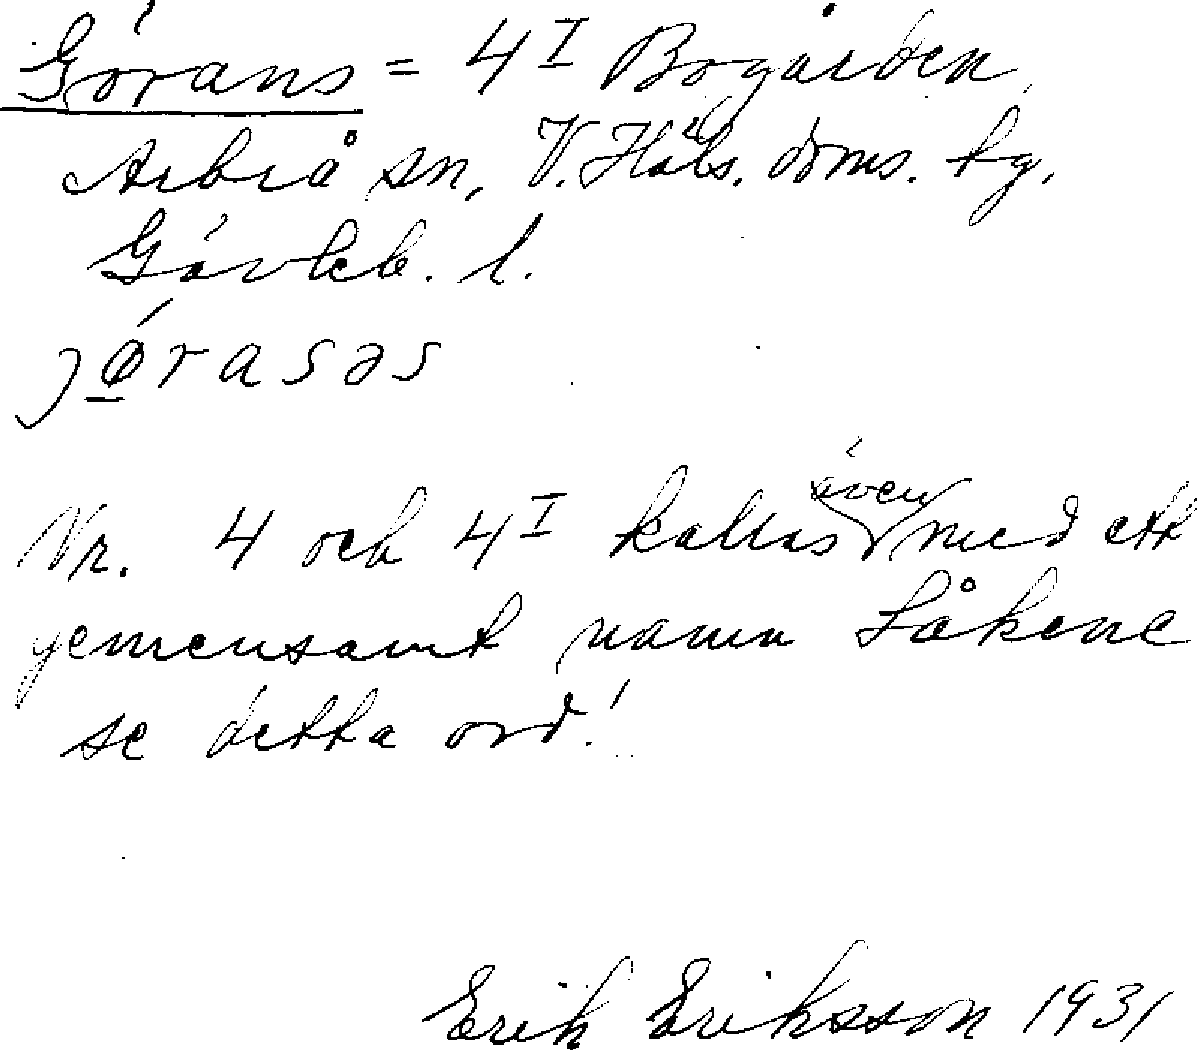 Görans = 4 I Bogården
Arbrå sn, V. Häls. doms. hg,
Gävleb. l.
jørasəs
Nr. 4 och 4 I kallas även med ett
gemensamt namn Låkene
se detta ord!
Erik Eriksson 1931